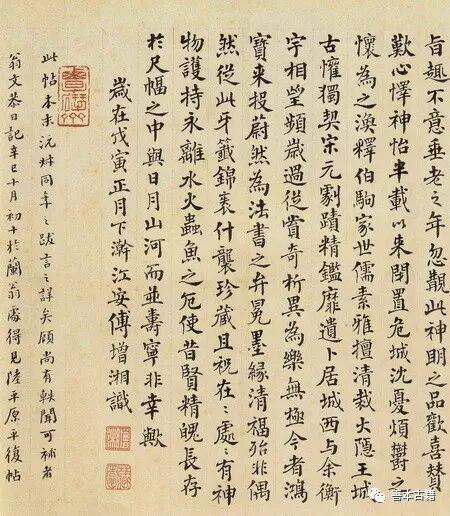 旨趣不意垂老之年忽覩此神明之品歡喜贊
歎心怿神怡半載以來閒置危城沈憂煩鬱之
懷為之渙釋伯駒家世儒素雅擅清裁大隱王城
古懽獨契宋元劇蹟精鑑靡遺卜居城西与余衡
宇相望頻歲過從賞奇析異為樂無極今者鴻
寶來投蔚然為法書之弁冕墨緣清福殆非偶
然從此牙籤錦裹什襲珍藏且祝在〻處〻有神
物護持永離水火蟲魚之厄使昔賢精魄長存
於尺幅之中與日月山河而並壽寧非幸歟
歲在戊寅正月下澣江安傅增湘識
此帖本末沅叔同年之跋言之詳矣顧尚有軼聞可補者
翁文恭日記辛巳十月初十於蘭翁處得見陸平原平復帖
善本古籍